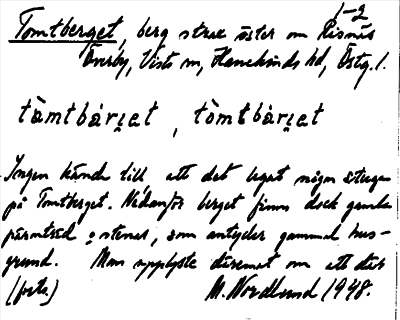 1-2
Tomtberget, berg strax öster om Risnäs
Överby, Vists sn, Hanekinds hd, Östg. l.
tàmtbárɪ̯et , tòmtbárɪ̯et
Ingen kände till att det legat någon stuga
på Tomtberget. Nedanför berget finns dock gamla
päronträd o stenar, som antyder gammal hus-
grund. Man upplyste däremot om att där
(forts.) M. Nordlund 1948.